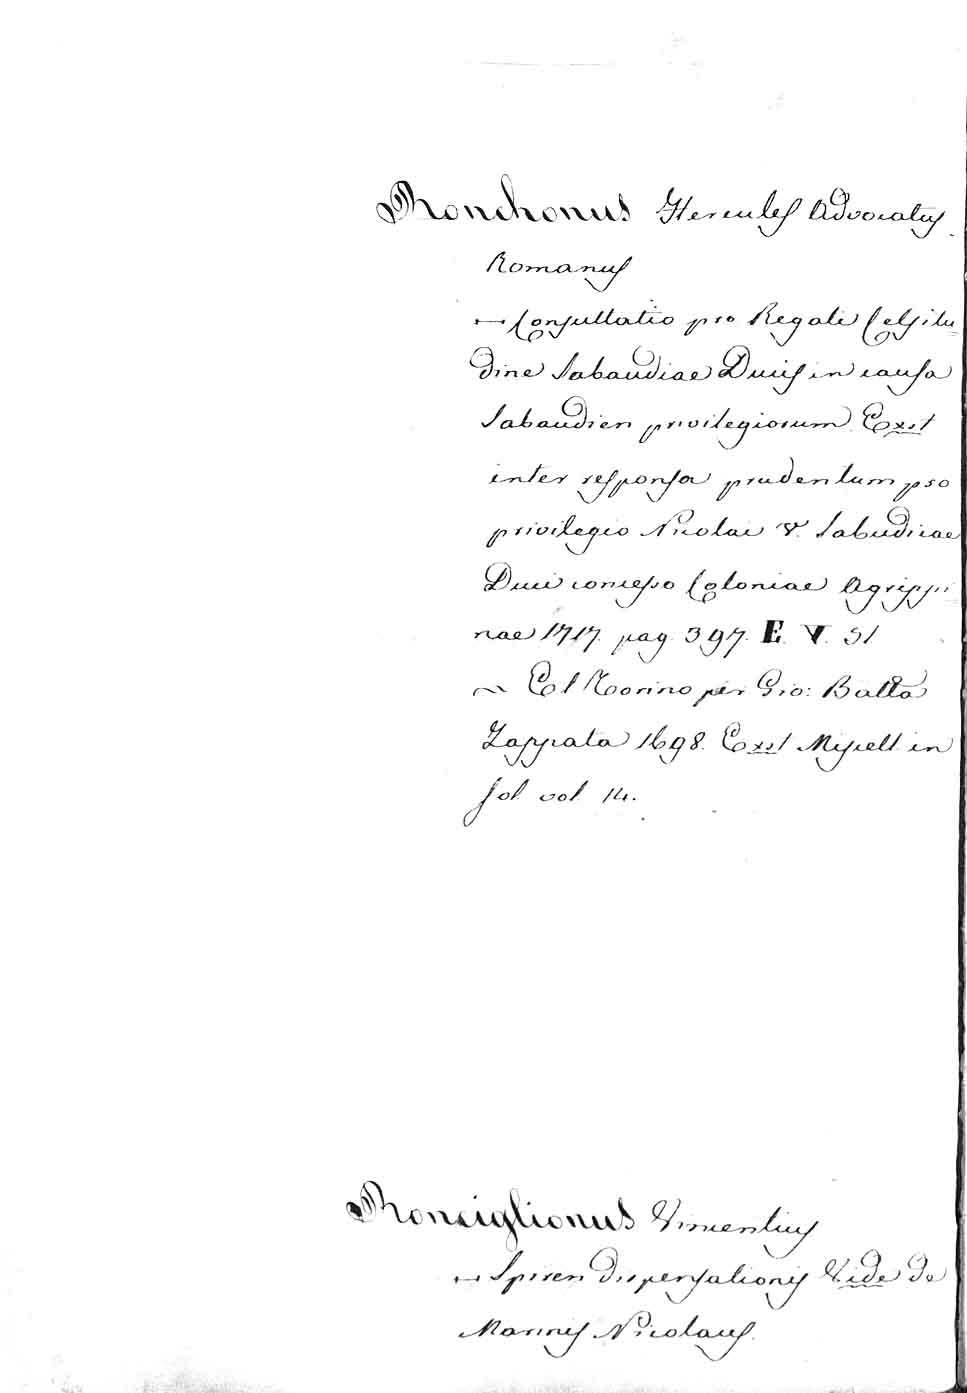 Ronchonus Hercules Advocatus
Romanus
— Consultatio pro Regali Celsitu=
dine Sabaudiae Ducis in causa
Sabaudien privilegiorum. Exst
inter responsa prudentum pro
privilegio Nicolai V. Sabudicae
Duci concesso Coloniae Agrippi=
nae 1717. pag. 397. E. V. 51
~ Et Torino per Gio: Batta
Zappata 1698. Exst Miscell. in
fol. vol. 14.
Ronciglionus Vincentius
— Spiren dispensationis Vide de
Marinis Nicolaus.